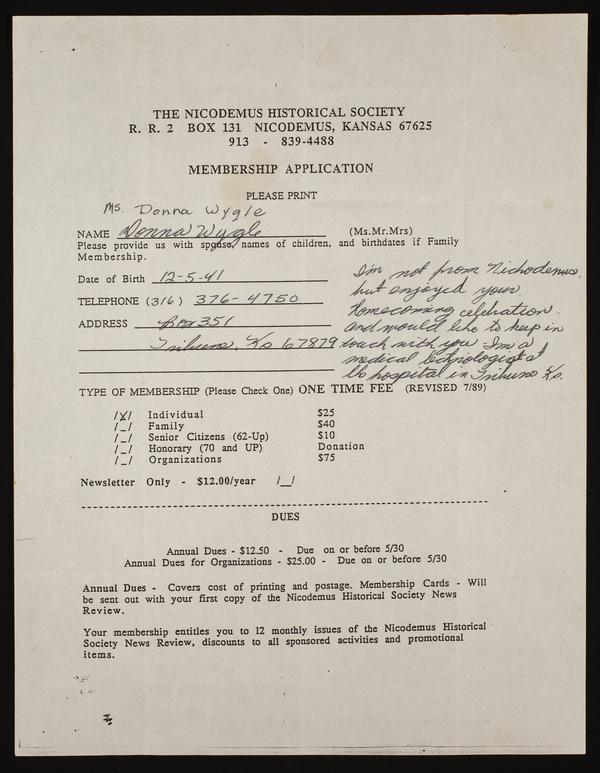 THE NICODEMUS HISTORICAL SOCIETY
R. R. 2 BOX 131 NICODEMUS, KANSAS 67625
913 - 839-4488
MEMBERSHIP APPLICATION
PLEASE PRINT
Ms. Donna Wygle
NAME Donna Wygle (Ms.Mr.Mrs)
Please provide us with spouse, names of children, and birthdates if Family
Membership.
Date of Birth 12-5-41
TELEPHONE (316) 376-4750
ADDRESS Box 351
Tribune, Ks 67879
I'm not from Nichodemus,
but enjoyed your
Homecoming celebration
and would like to keep in
touch with you I'm a
medical technologist at
hospital in Tribune Ks.
TYPE OF MEMBERSHIP (Please Check One) ONE TIME FEE (REVISED 7/89)
/X/ Individual $25
/_/ Family $40
/_/ Senior Citizens (62-Up) $10
/_/ Honorary (70 and UP) Donation
/_/ Organizations $75
Newsletter Only - $12.00/year /_/
DUES
Annual Dues - $12.50 - Due on or before 5/30
Annual Dues for Organizations - $25.00 - Due on or before 5/30
Annual Dues - Covers cost of printing and postage. Membership Cards - Will
be sent out with your first copy of the Nicodemus Historical Society News
Review.
Your membership entitles you to 12 monthly issues of the Nicodemus Historical
Society News Review, discounts to all sponsored activities and promotional
items.